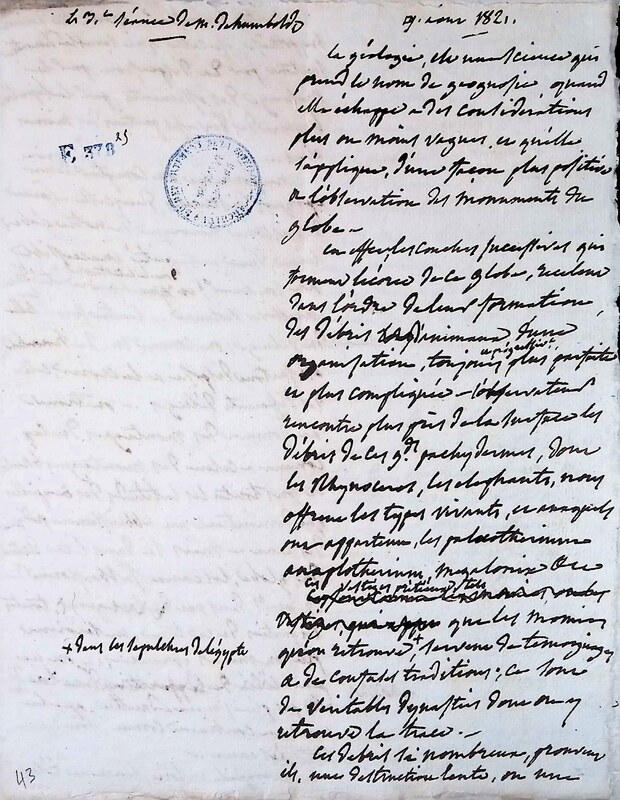 Le 3.e Séance de M. de humboldt
9. aout 1821.
La géologie, est une science qui
prend le nom de géognosie quand
elle échappe a des considérations
plus ou moins vagues, et qu'elle
s'applique, d'une façon plus positive
a l'observation des monuments du
globe.
E. 378
25
en effet les couches successives qui
forment l'écorce de ce globe, recelent
dans l'ordre de leur formation,
des débris d'animaux d'une
organisation, toujours plus parfaite
et progressivt
et plus compliquée - l'observateur
rencontre plus près de la surface les
débris de ces gds pachydermes, dont
les Rhynoceros, les elephants, nous
offrent les types vivants, et auxquels
ont appartenu, les palaeotherium
anaplotherium, megalonix &c
ces vestiges
que les momies
+ dans les sepulchres de l'égypte
qu'on retrouve + servent de temoignages
a de confuses traditions; ce sont
de véritables dynasties dont on y
retrouve la trace. -
Ces débris si nombreux, prouvent
ils, une destruction lente, ou une
43